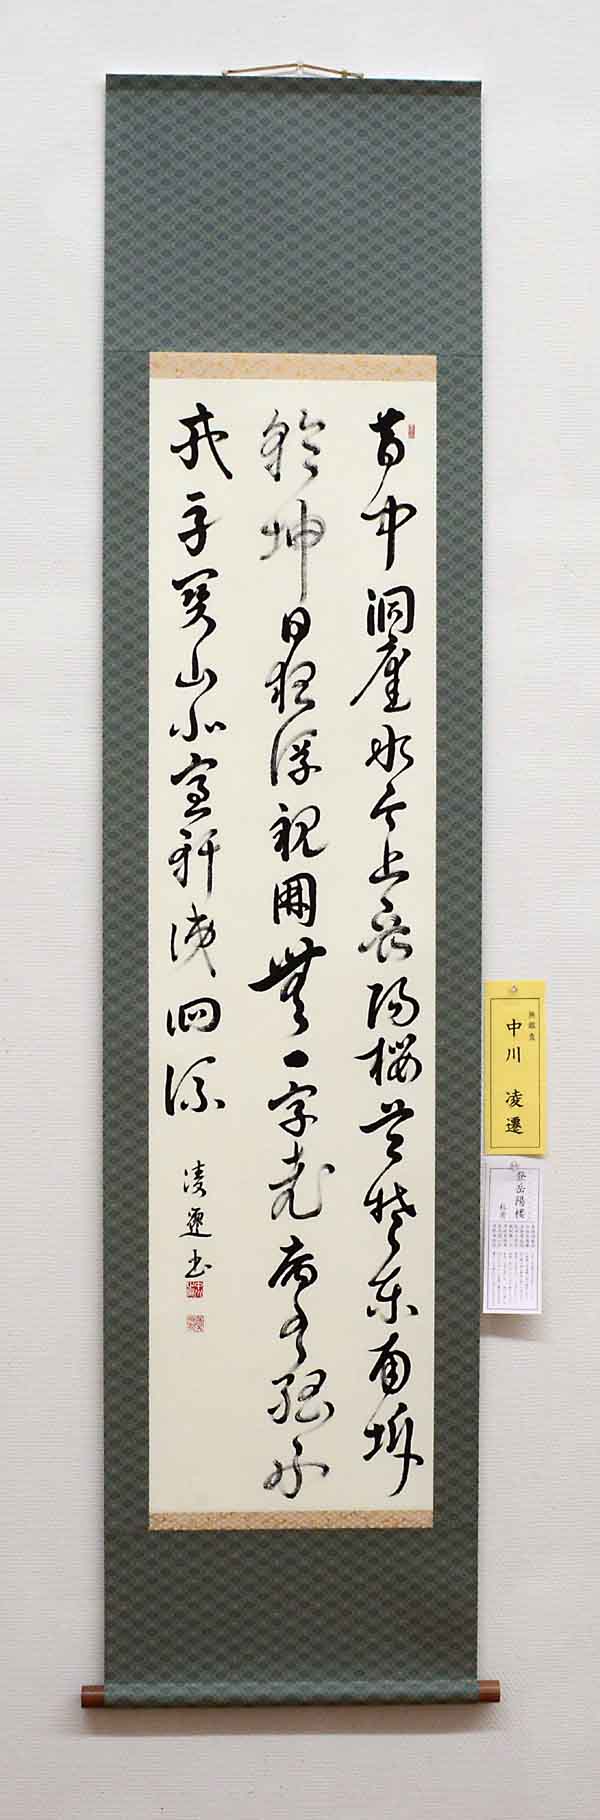 昔聞洞庭水今上岳陽樓呉楚東南坼
乾坤日夜浮親朋無一字老病有孤舟
戎馬關山北憑軒涕泗流
凌遷書
無鑑査
中川 凌遷
登岳陽楼
杜甫